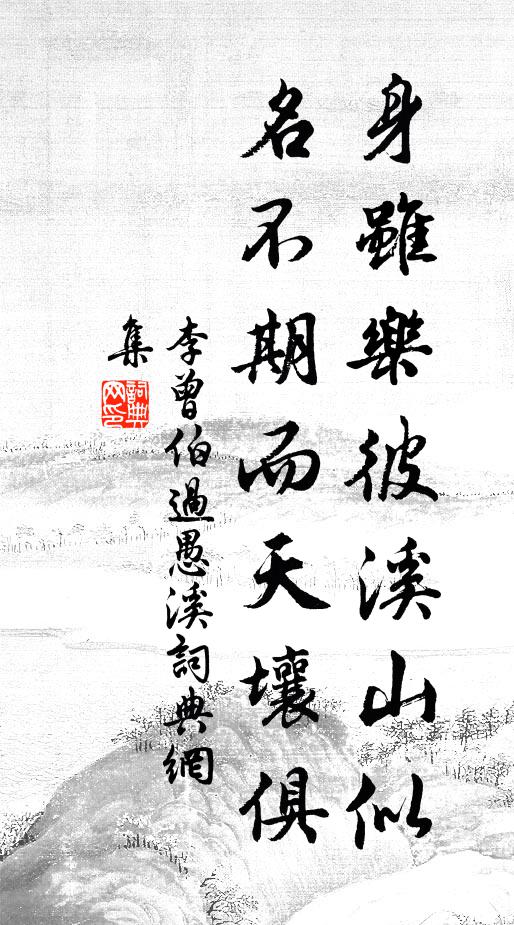 身雖樂彼溪山似
名不期而天壤俱
李曾伯過愚溪詞典網
集
詞典
网印